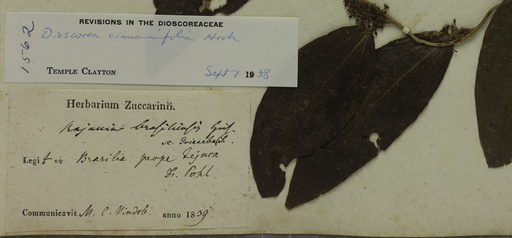 REVISIONS IN THE DIOSCOREACEAE
Dioscorea cinnamomifolia Hook
1562
TEMPLE CLAYTON Sept 7 1938
Herbarium Zuccarinii.
Rajania brasiliensis
Legit in Brasilia prope Tejuca
Pohl
Communicavit M. C. Vindob. anno 1839